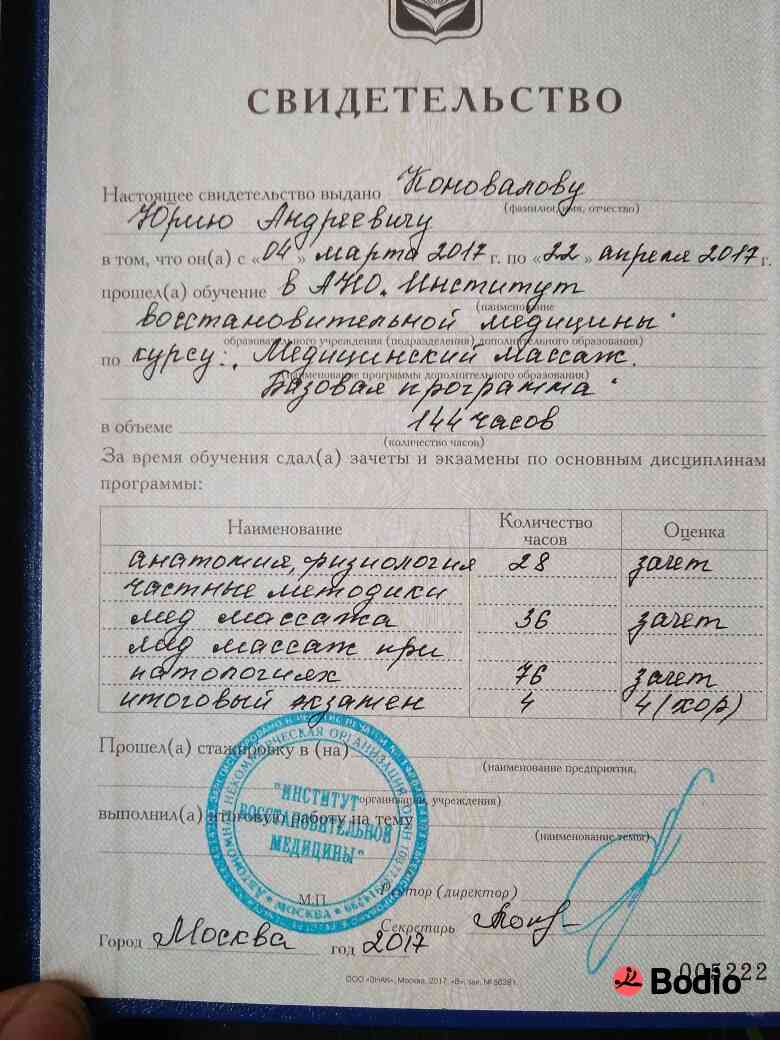 СВИДЕТЕЛЬСТВО
Настоящее свидетельство выдано Коновалову
(фамилия, имя, отчество)
Юрию Андреевичу
в том, что он(а) с «04» марта 2017 г. по «22» апреля 2017 г.
прошел(а) обучение в АНО. Институт
(наименование
восстановительной медицины"
образовательного учреждения (подразделения) дополнительного образования)
по курсу: „Медицинский массаж.
(наименование программы дополнительного образования)
Базовая программа"
в объеме 144 часов
(количество часов)
За время обучения сдал(а) зачеты и экзамены по основным дисциплинам
программы:
Наименование Количество часов Оценка
анатомия, физиология 28 зачет
частные методики
мед массажа 36 зачет
мед массаж при
патологиях 76 зачет
итоговый экзамен 4 4 (хор)
Прошел(а) стажировку в (на)
(наименование предприятия,
организации, учреждения)
выполнил(а) итоговую работу на тему
(наименование темы)
АВТОНОМНАЯ НЕКОММЕРЧЕСКАЯ ОРГАНИЗАЦИЯ
"ИНСТИТУТ
ВОССТАНОВИТЕЛЬНОЙ
МЕДИЦИНЫ"
МОСКВА
М.П.
Ректор (директор)
Секретарь
Город Москва год 2017
005222
ООО «ЗНАК», Москва, 2017, «В», зак. № 50281.
Bodio